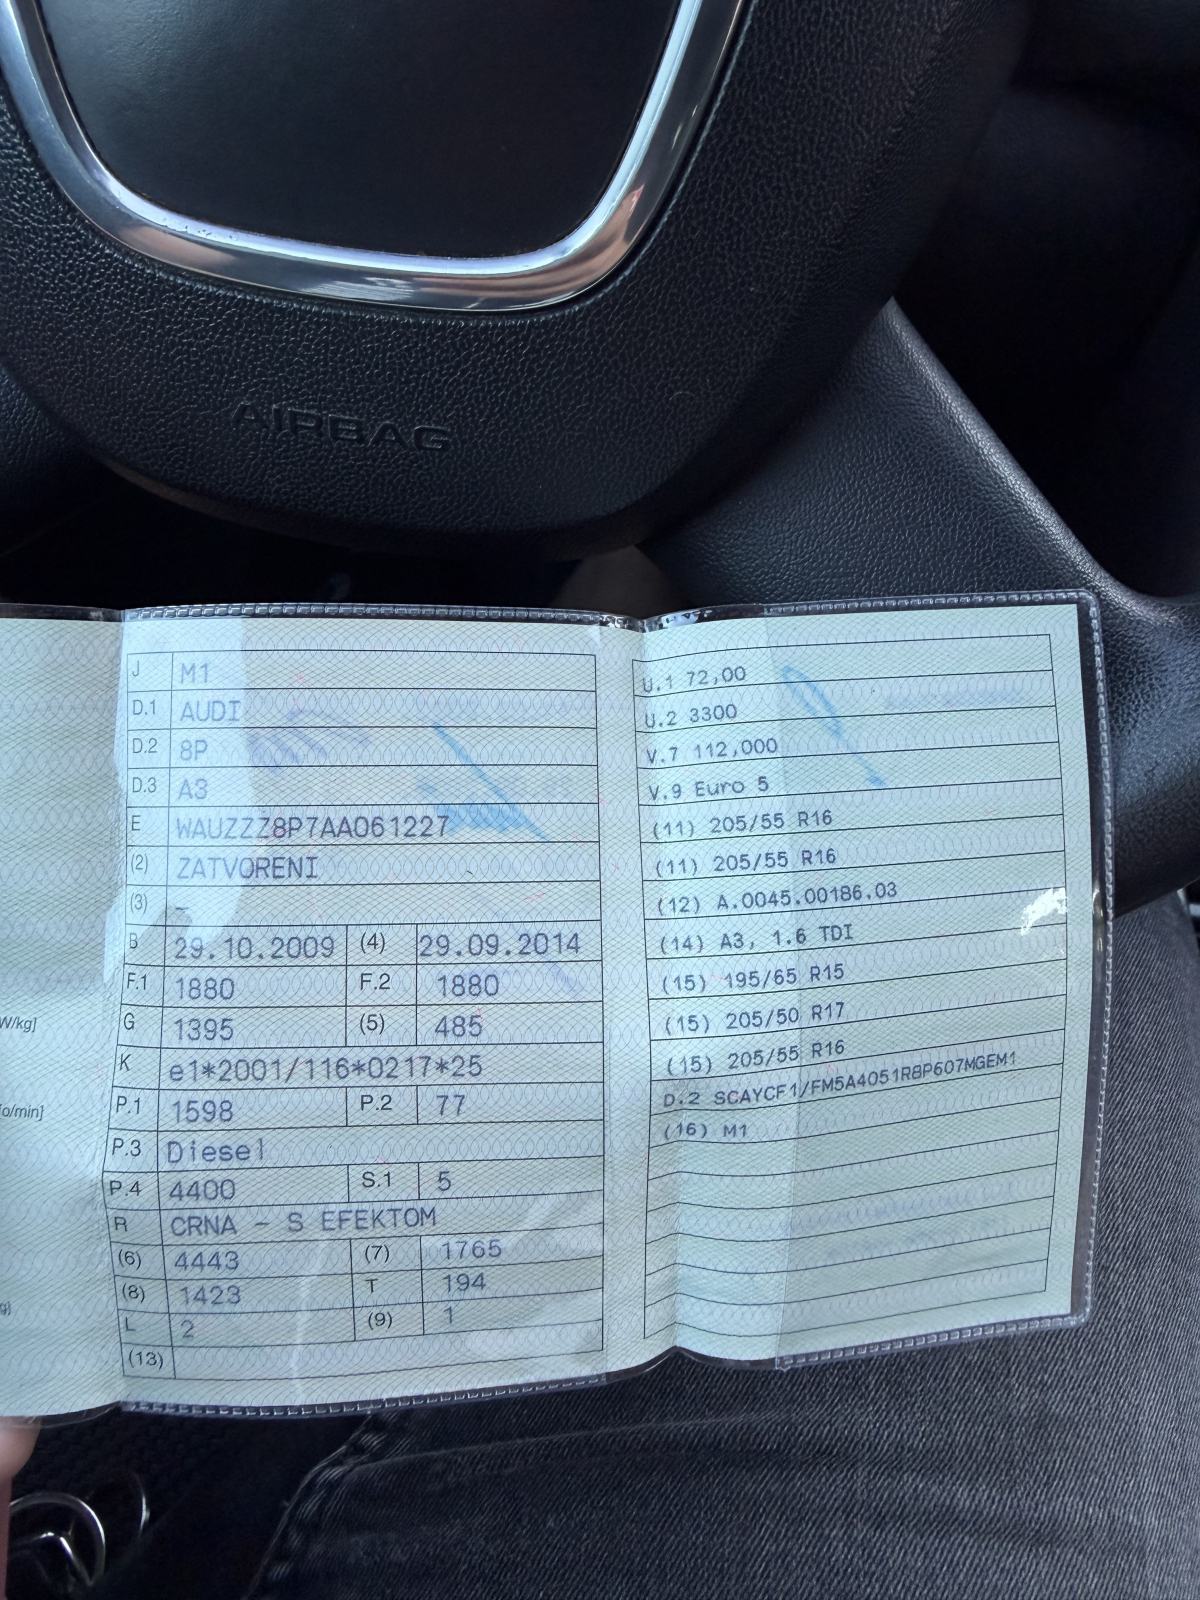 AIRBAG
J M1
D.1 AUDI
D.2 8P
D.3 A3
E WAUZZZ8P7AA061227
(2) ZATVORENI
(3) –
B 29.10.2009 (4) 29.09.2014
F.1 1880 F.2 1880
G 1395 (5) 485
K e1*2001/116*0217*25
P.1 1598 P.2 77
P.3 Diesel
P.4 4400 S.1 5
R CRNA – S EFEKTOM
(6) 4443 (7) 1765
(8) 1423 T 194
L 2 (9) 1
(13)
W/kg]
[o/min]
g]
U.1 72,00
U.2 3300
V.7 112,000
V.9 Euro 5
(11) 205/55 R16
(11) 205/55 R16
(12) A.0045.00186.03
(14) A3, 1.6 TDI
(15) 195/65 R15
(15) 205/50 R17
(15) 205/55 R16
D.2 SCAYCF1/FM5A4051R8P607MGEM1
(16) M1